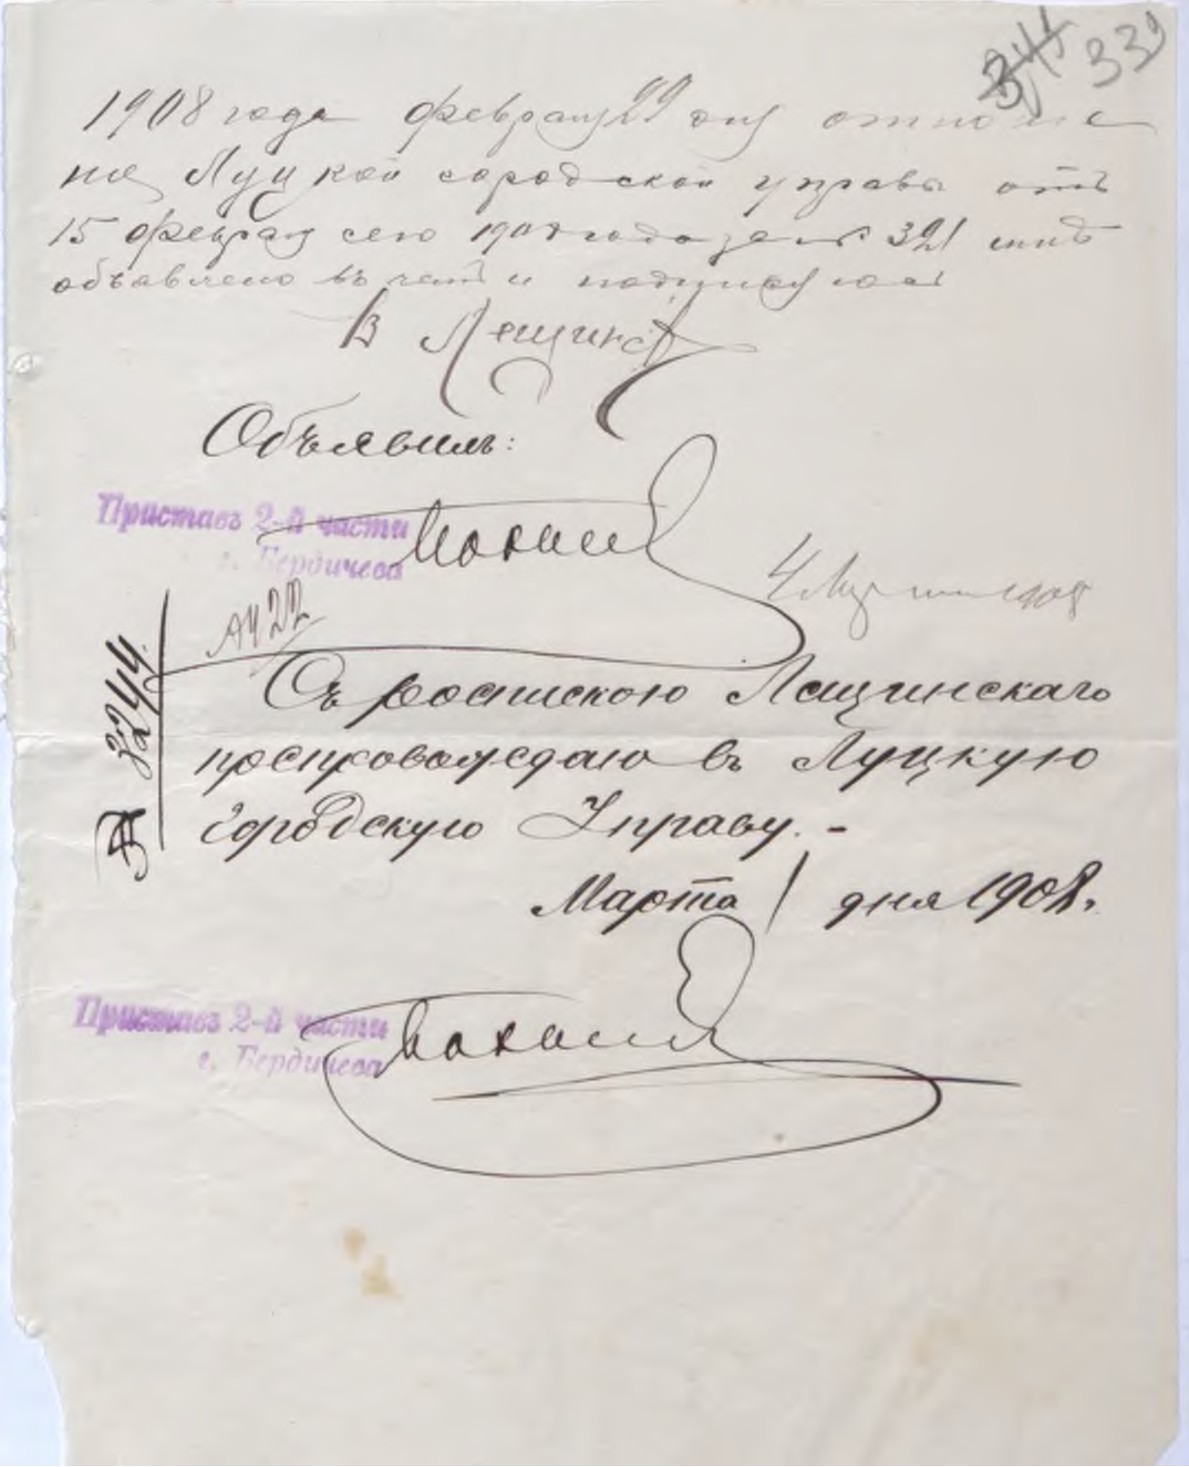 341 339
1908 года февраля 29 дня отноше
ние Луцкой городской управы отъ
15 февраля сего 1908 года за № 321 мнѣ
объявлено въ чемъ и подписуюсь
В Лещинс
Объявилъ:
Приставъ 2-й части
г. Бердичева
4 Марта 1908
№ 3244
422
Съ роспискою Лещинскаго
препровождаю въ Луцкую
Городскую Управу. –
Марта 1 дня 1908.
Приставъ 2-й части
г. Бердичева